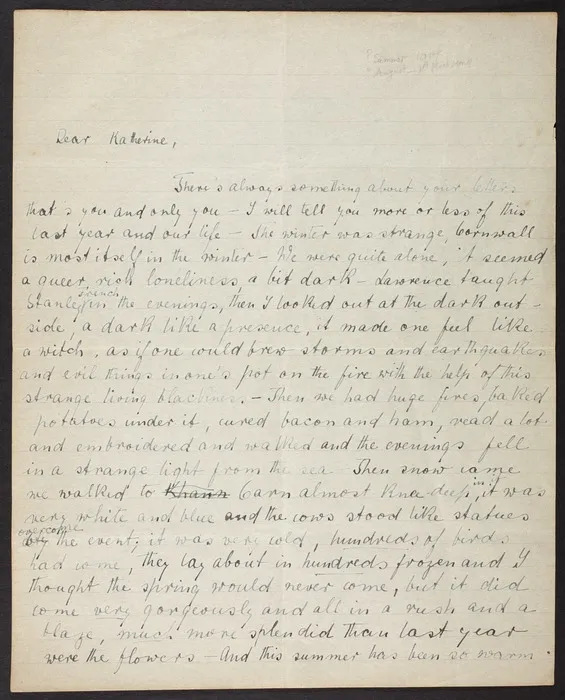 Summer
August
Dear Katherine,
There's always something about your letters
that's you and only you – I will tell you more or less of this
last year and our life – The winter was strange, Cornwall
is most itself in the winter – We were quite alone, it seemed
a queer, rich loneliness, a bit dark – Lawrence taught
Stanley french in the evenings, then I looked out at the dark out-
side, a dark like a presence, it made one feel like
a witch, as if one would brew storms and earthquakes
and evil things in one's pot on the fire with the help of this
strange living blackness. – Then we had huge fires, baked
potatoes under it, cured bacon and ham, read a lot
and embroidered and walked and the evenings fell
in a strange light from the sea Then snow came
we walked to Carn almost knee-deep in it, it was
very white and blue and the cows stood like statues
overcome by the event; it was very cold, hundreds of birds
had come, they lay about in hundreds frozen and I
thought the spring would never come, but it did
come very gorgeously and all in a rush and a
blaze, much more splendid than last year
were the flowers – And this summer has been so warm